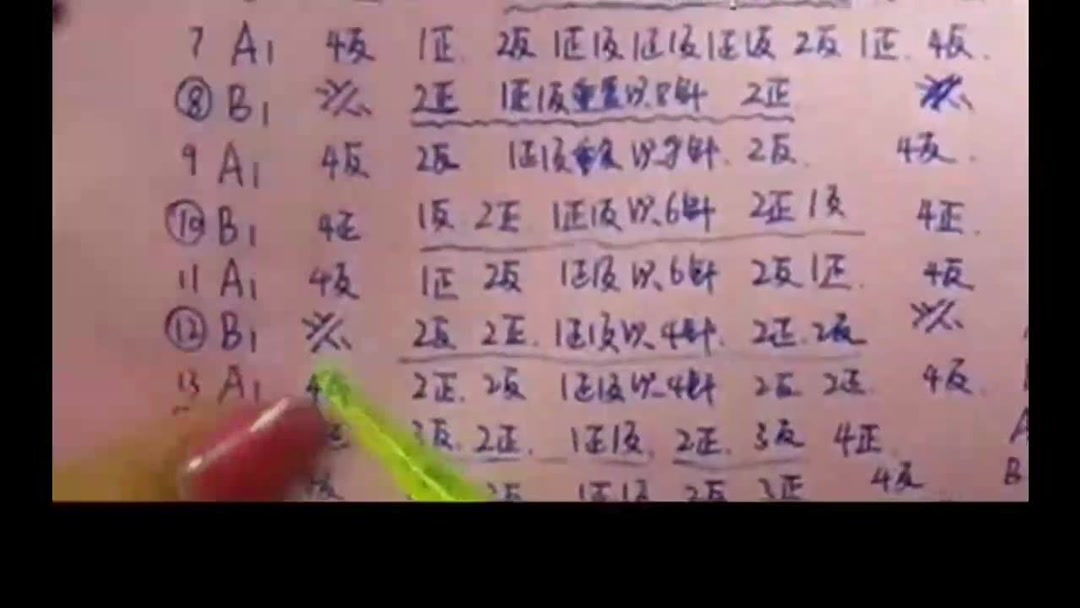 7 A1 4反 1正. 2反 1正1反1正1反1正1反 2反 1正. 4反.
⑧ B1 ※ 2正 1正1反重复以8针 2正 ※
9 A1 4反 2反 1正1反重复以8针. 2反. 4反.
⑩ B1 4正 1反 2正 1正1反以6针 2正1反 4正.
11 A1 4反 1正 2反 1正1反以6针 2反1正. 4反
⑫ B1 ※ 2反 2正. 1正1反以4针. 2正.2反 ※
13 A1 2正. 2反 1正1反以4针 2反 2正. 4反.
3反. 2正. 1正1反. 2正. 3反 4正.
2反 1正1反 2反 3正 4反
A
B